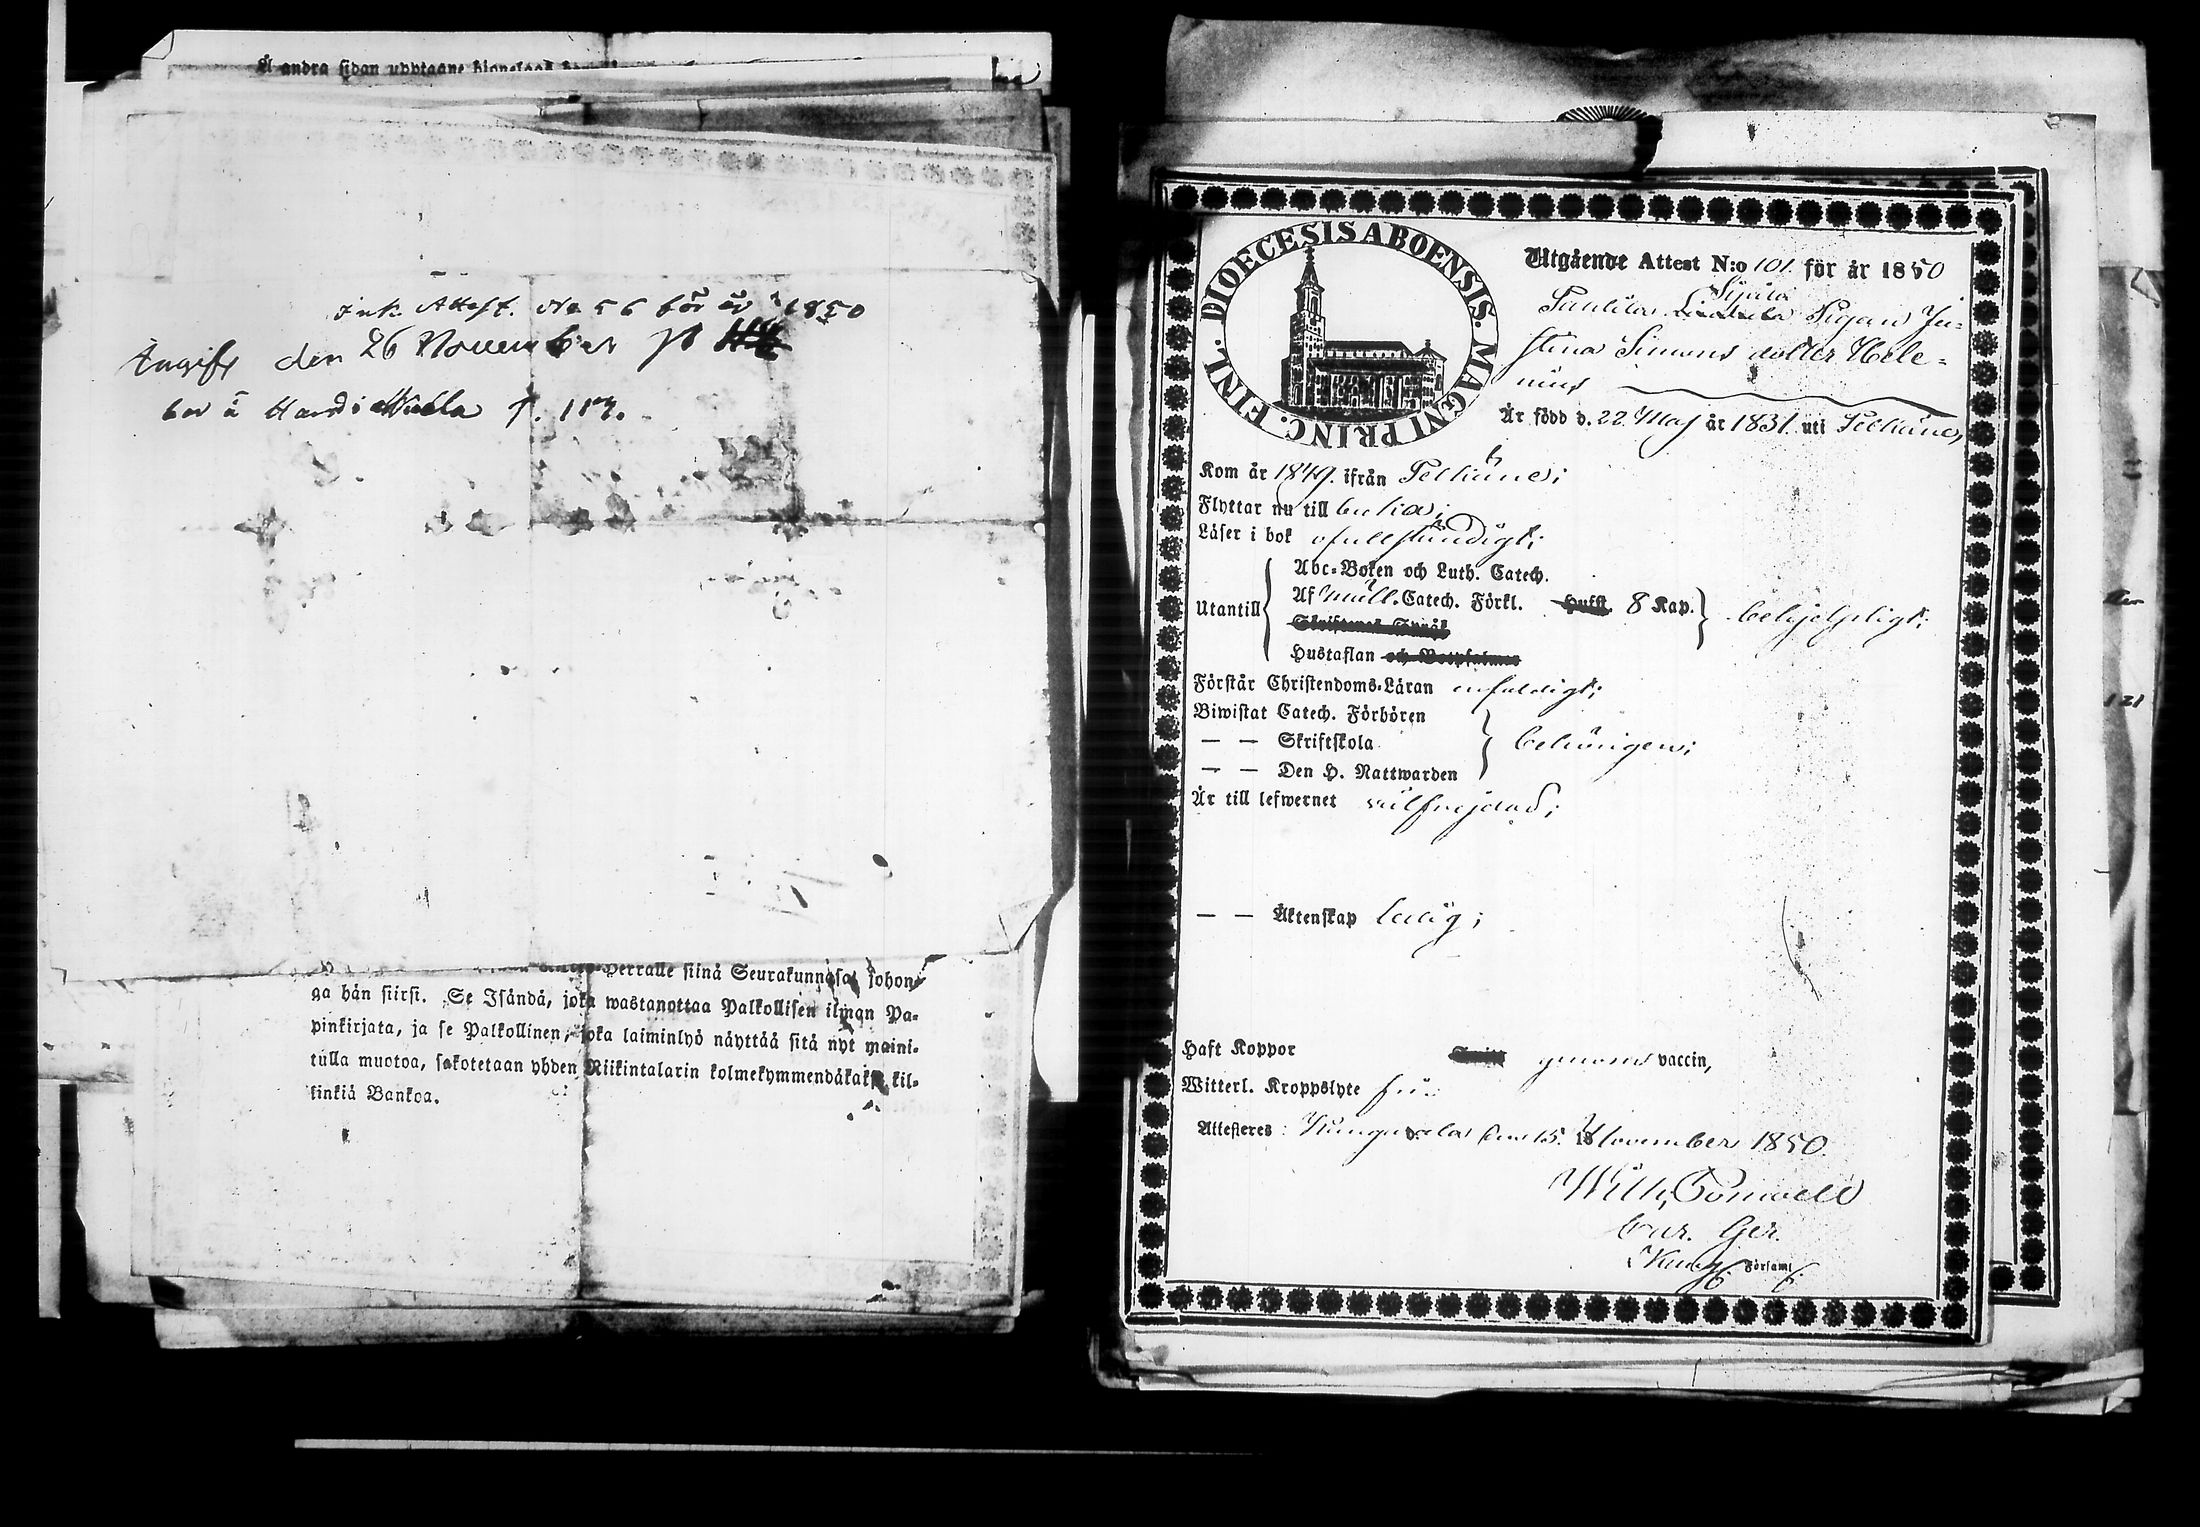 Å andra sidan upptagne
Ink. Attest. No 56 för år 1850
Angifs den 26 November
bor å p. 117.
Herralle siinä Seurakunnasa, johon-
ga hän siirsi. Se Isändä, joka wastanottaa Palkollisen ilman Pa-
pinkirjata, ja se Palkollinen, joka laiminlyö näyttää sitä nyt maini-
tulla muotoa, sakotetaan yhden Riikintalarin kolmekymmendäkaksi kil-
linkiä Bankoa.
DIOECESIS ABOENSIS. MAGNI PRINC. FINL.
Utgående Attest N:o 101. för år 1850
Pigan Ju-
stina Simons dotter Hele-
nius
Är född d. 22 Maj år 1831. uti Pelkäne,
Kom år 1849. ifrån Pelkäne;
Flyttar nu till
Läser i bok ofullständigt;
Utantill
Abc-Boken och Luth. Catech.
Af Catech. Förkl. Hufst. 8 Kap.
Skriftenes Språk
Hustaflan och Botpsalmer
behjelpligt;
Förstår Christendoms-Läran enfaldigt;
Biwistat Catech. Förhören
— — Skriftskola
— — Den H. Nattwarden
behörigen;
Är till lefwernet välfrejdad;
— — Äktenskap ledig;
Haft Koppor genom vaccin,
Witterl. Kroppslyte fri.
Attesteres: Kungsala den 15. November 1850.
Wilh.
Församl.